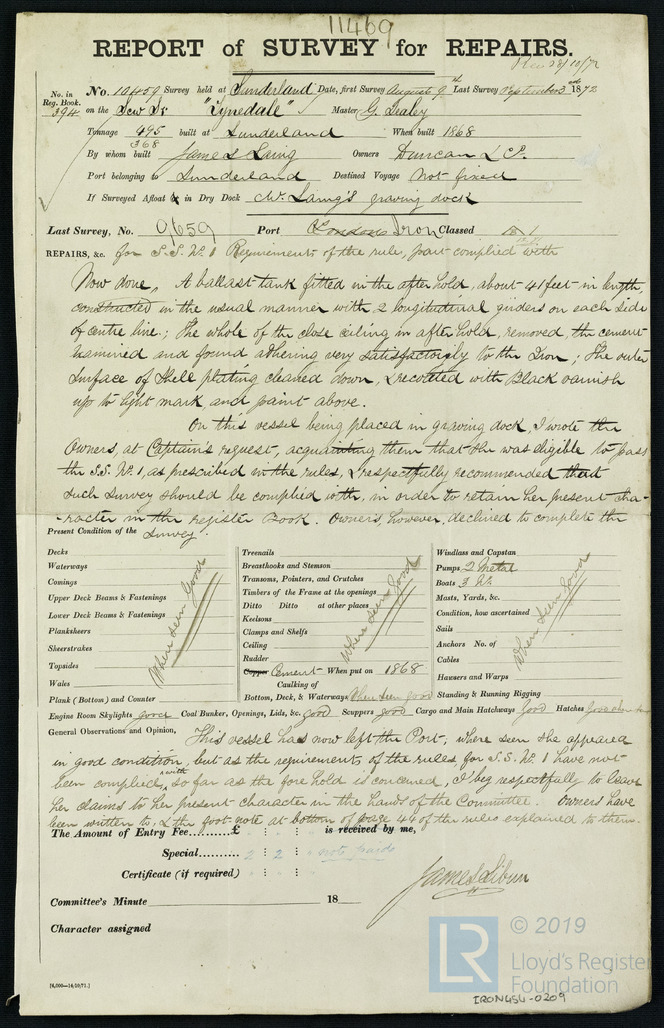 11469
REPORT of SURVEY for REPAIRS.
Rec 23/10/72
No. in Reg. Book. 394
No. 10459 Survey held at Sunderland Date, first Survey August 9th Last Survey September 2nd 1872
on the Scw Sr "Tynedale" Master G. Sealey
Tonnage 495 built at Sunderland When built 1868
368
By whom built James Laing Owners Duncan & Co.
Port belonging to Sunderland Destined Voyage Not fixed
If Surveyed Afloat or in Dry Dock Mr. Laing's graving dock
Last Survey, No. 9659 Port London Iron Classed A 1
REPAIRS, &c. for S.S. No. 1 Requirements of the rules, part complied with
Now done, A ballast tank fitted in the after hold, about 41 feet in length,
constructed in the usual manner with 2 longitudinal girders on each side
of centre line; The whole of the close ceiling in after hold, removed, the cement
examined and found adhering very satisfactorily to the Iron; The outer
surface of Shell plating cleaned down, & recoated with Black varnish
up to light mark, and paint above.
On this vessel being placed in graving dock, I wrote the
Owners, at Captain's request, acquainting them that she was eligible to pass
the S.S. No. 1, as prescribed in the rules, & respectfully recommended that
such survey should be complied with, in order to retain her present cha-
-racter in the register Book. Owners, however, declined to complete the
Present Condition of the Survey.
Decks
Waterways
Comings
Upper Deck Beams & Fastenings
Lower Deck Beams & Fastenings
Planksheers
Sheerstrakes
Topsides
Wales
Plank (Bottom) and Counter
When seen Good
Treenails
Breasthooks and Stemson
Transoms, Pointers, and Crutches
Timbers of the Frame at the openings
Ditto Ditto at other places
Keelsons
Clamps and Shelfs
Ceiling
Rudder
Copper Cement When put on 1868
Caulking of
Bottom, Deck, & Waterways When seen good
When seen Good
Windlass and Capstan
Pumps 2 Metal
Boats 3
Masts, Yards, &c.
Condition, how ascertained
Sails
Anchors No. of
Cables
Hawsers and Warps
Standing & Running Rigging
When seen Good
Engine Room Skylights good Coal Bunker, Openings, Lids, &c. good Scuppers good Cargo and Main Hatchways Good Hatches Good
General Observations and Opinion, This vessel has now left the Port; where seen she appeared
in good condition, but as the requirements of the rules, for S.S. No. 1 have not
been complied with, so far as the fore hold is concerned, I beg respectfully to leave
her claims to her present character in the hands of the Committee. Owners have
been written to, & the foot-note at bottom of page 44 of the rules explained to them.
The Amount of Entry Fee....£ : : is received by me,
Special......... 2 : 2 : not paid
Certificate (if required) : :
James Sibun
Committee's Minute 18
Character assigned
[6,000—14/10/71.]
LR © 2019
Lloyd's Register
Foundation
IRON454-0209